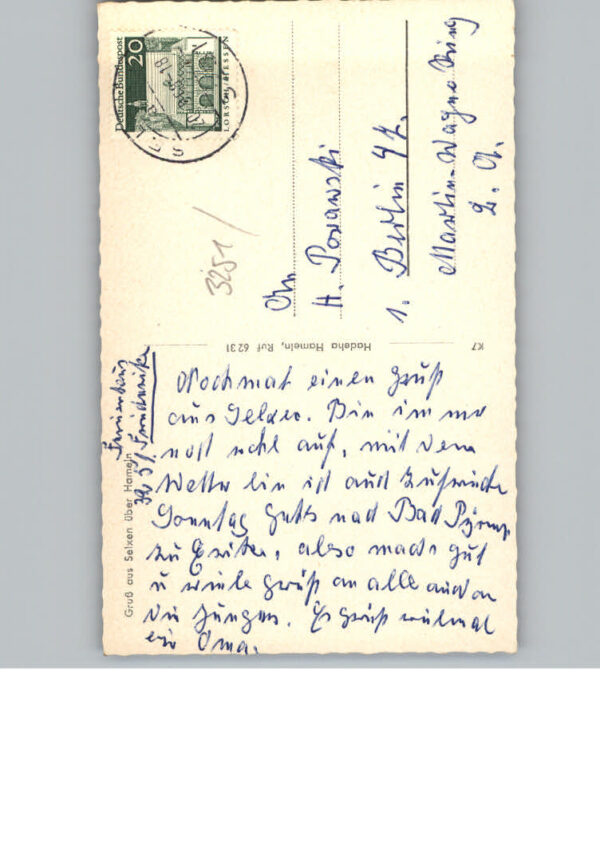 Nochmal einen Gruß
aus Selxen. Bin immer
noch wohl auf, mit dem
Wetter bin ich auch zufrieden
Sonntag gehts nach Bad Pyrmont
zu Besuch, also machs gut
u viele Grüß an alle auch an
die Jungen. Es grüßt vielmal
die Oma.
Ferienhaus
3251 Friederike
Gruß aus Selxen über Hameln
Hadeha Hameln, Ruf 6231
K7
Deutsche Bundespost
20
LORSCH/HESSEN
3251/
An
H. Porawski
1. Berlin 47.
Martin-Wagner-Ring
2. A.